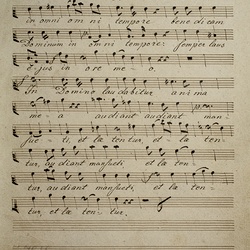 in omni omni tempore benedicam
Dominum in omni tempore: semper laus
ejus in ore meo.
In Domino laudabitur anima
mea audiant audiant man-
sueti, et læ tentur et læ ten-
tur, audiant mansueti, et læ ten-
tur, audiant mansueti, et læ ten-
tur, et læ tentur.